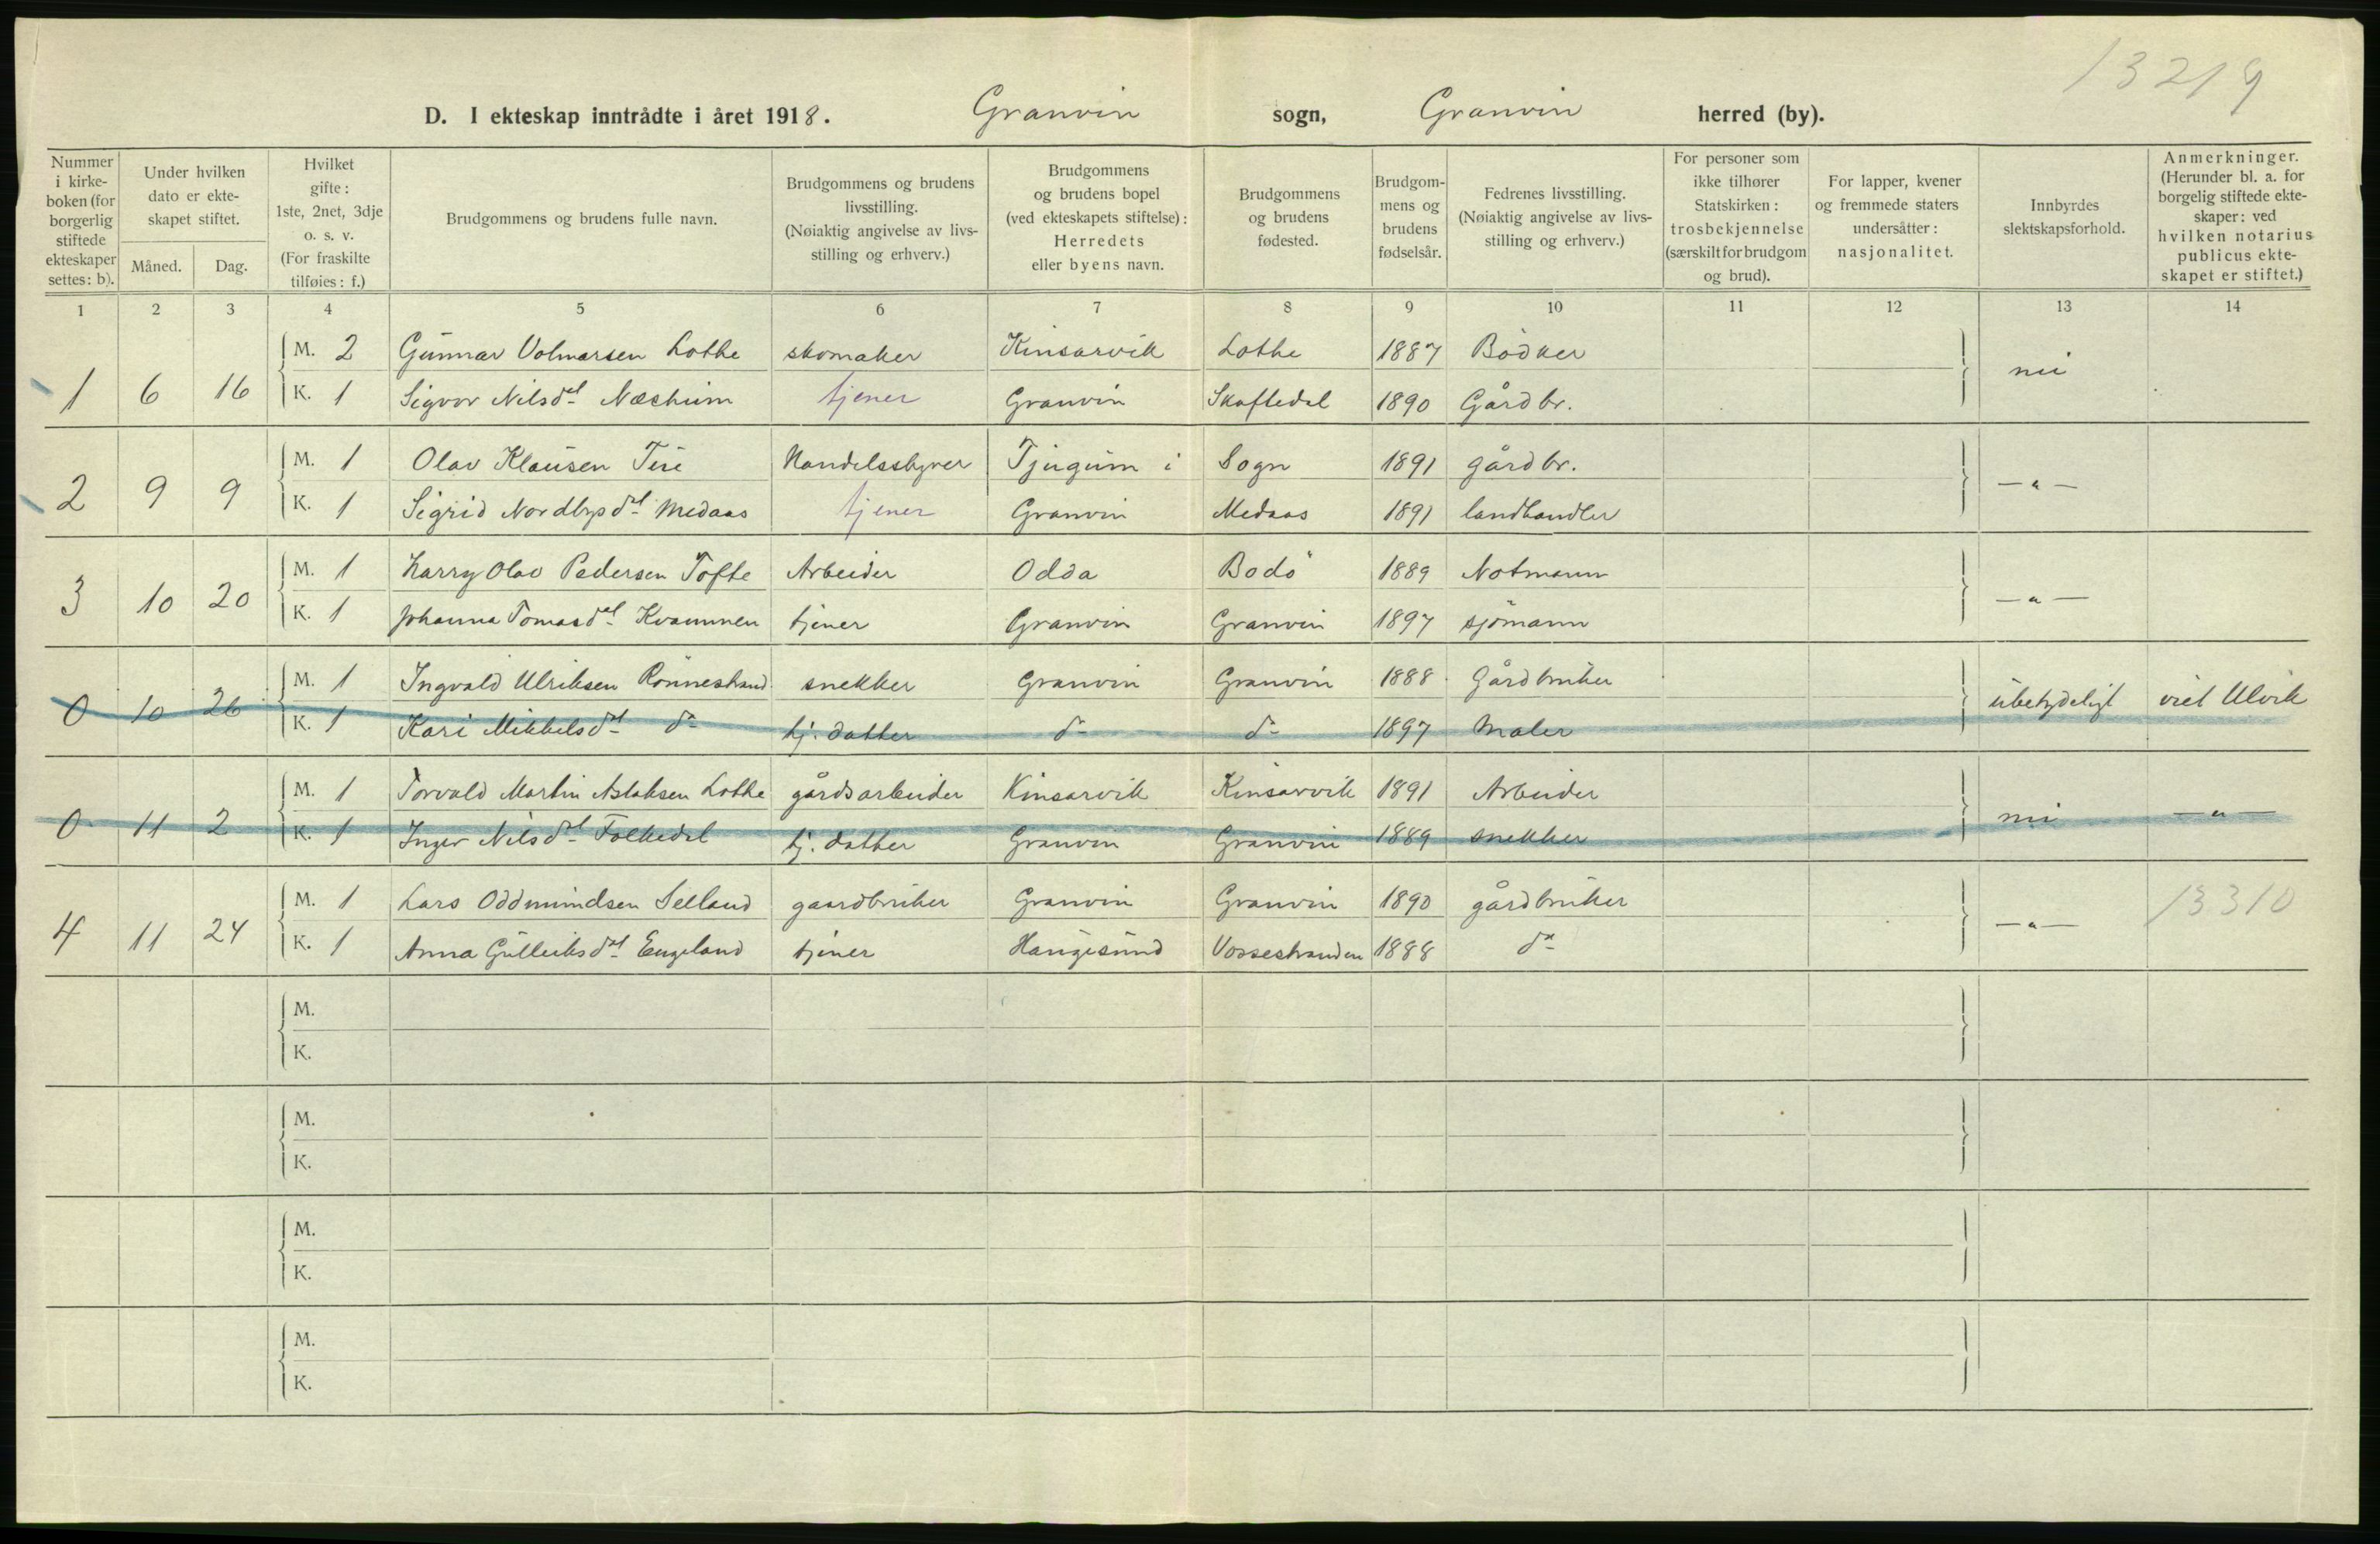 13219
D. I ekteskap inntrådte i året 1918. Granvin sogn, Granvin herred (by).
Nummer i kirke-boken (for borgerlig stiftede ekteskaper settes: b).
Under hvilken dato er ekte-skapet stiftet.
Måned. Dag.
Hvilket gifte: 1ste, 2net, 3dje o. s. v. (For fraskilte tilføies: f.)
Brudgommens og brudens fulle navn.
Brudgommens og brudens livsstilling. (Nøiaktig angivelse av livs-stilling og erhverv.)
Brudgommens og brudens bopel (ved ekteskapets stiftelse): Herredets eller byens navn.
Brudgommens og brudens fødested.
Brudgom-mens og brudens fødselsår.
Fedrenes livsstilling. (Nøiaktig angivelse av livs-stilling og erhverv.)
For personer som ikke tilhører Statskirken: trosbekjennelse (særskilt for brudgom og brud).
For lapper, kvener og fremmede staters undersåtter: nasjonalitet.
Innbyrdes slektskapsforhold.
Anmerkninger. (Herunder bl. a. for borgerlig stiftede ekte-skaper: ved hvilken notarius publicus ekte-skapet er stiftet.)
1 2 3 4 5 6 7 8 9 10 11 12 13 14
M. 2 Gunnar Volmarsen Lothe skomaker Kinsarvik Lothe 1887 Bödker
1 6 16 K. 1 Sigvor Nilsdtr Næsheim tjener Granvin Skaftedal 1890 Gårdbr. nei
M. 1 Olav Klausen Tire Handelsstyrer Tjugum i Sogn 1891 gårdbr.
2 9 9 K. 1 Sigrid Nordbysdtr Medaas tjener Granvin Medaas 1891 landhandler — " —
M. 1 Harry Olav Pedersen Tofte Arbeider Odda Bodö 1889 Notmann
3 10 20 K. 1 Johanna Tomasdtr Kvammen tjener Granvin Granvin 1897 sjömann — " —
M. 1 Ingvald Ulriksen Rönnestrand snekker Granvin Granvin 1888 Gårdbruker
0 10 26 K. 1 Kari Mikkelsdtr do tj. datter do do 1897 Maler ubetydeligt viet Ulvik
M. 1 Torvald Martin Aslaksen Lothe gårdsarbeider Kinsarvik Kinsarvik 1891 Arbeider
0 11 2 K. 1 Inger Nilsdtr Folkedal tj. datter Granvin Granvin 1889 snekker nei — " —
M. 1 Lars Oddmundsen Selland gaardbruker Granvin Granvin 1890 gårdbruker 13310
4 11 24 K. 1 Anna Gulleiksdtr Engeland tjener Haugesund Vossestranden 1888 do — " —
M.
K.
M.
K.
M.
K.
M.
K.